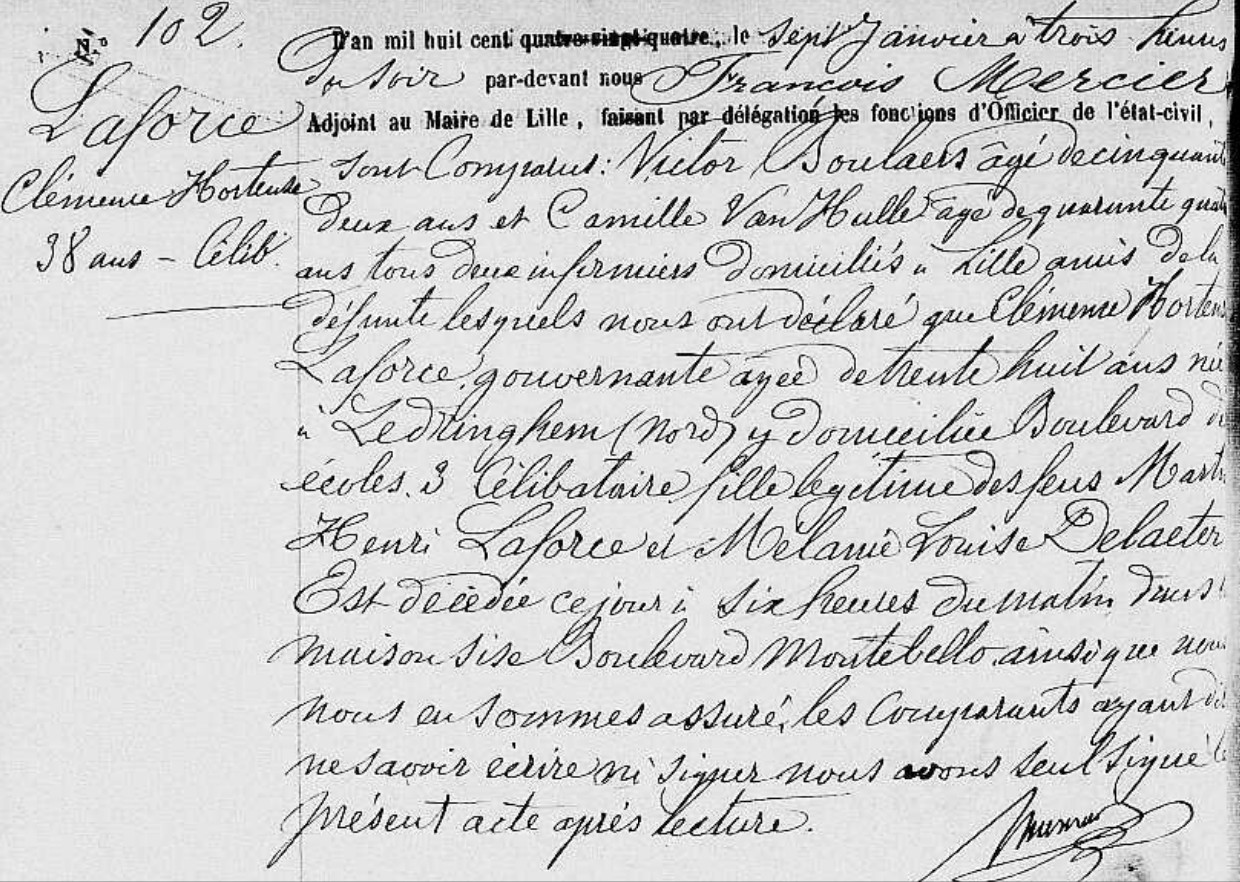 N.° 102.
Laforce
Clémence Hortense
38 ans - Célib.
L'an mil huit cent quatre-vingt-quatre, le sept Janvier à trois heures
du soir par-devant nous François Mercier
Adjoint au Maire de Lille, faisant par délégation les fonctions d'Officier de l'état-civil,
sont Comparus: Victor Boulaers âgé de cinquante
deux ans et Camille Van Hulle âgé de quarante quatre
ans tous deux infirmiers domiciliés à Lille amis de la
défunte lesquels nous ont déclaré que Clémence Hortens
Laforce, gouvernante agée de trente huit ans née
à Ledringhem (Nord) y domiciliée Boulevard de
écoles. 3 Célibataire fille légitime des feus Mart
Henri Laforce et Mélanie Louise Delaeter
Est décédée ce jour à six heures du matin dans
maison sise Boulevard Montebello. ainsi que nou
nous en sommes assuré, les Comparants ayant dé
ne savoir écrire ni signer nous avons seul signé le
présent acte après lecture.